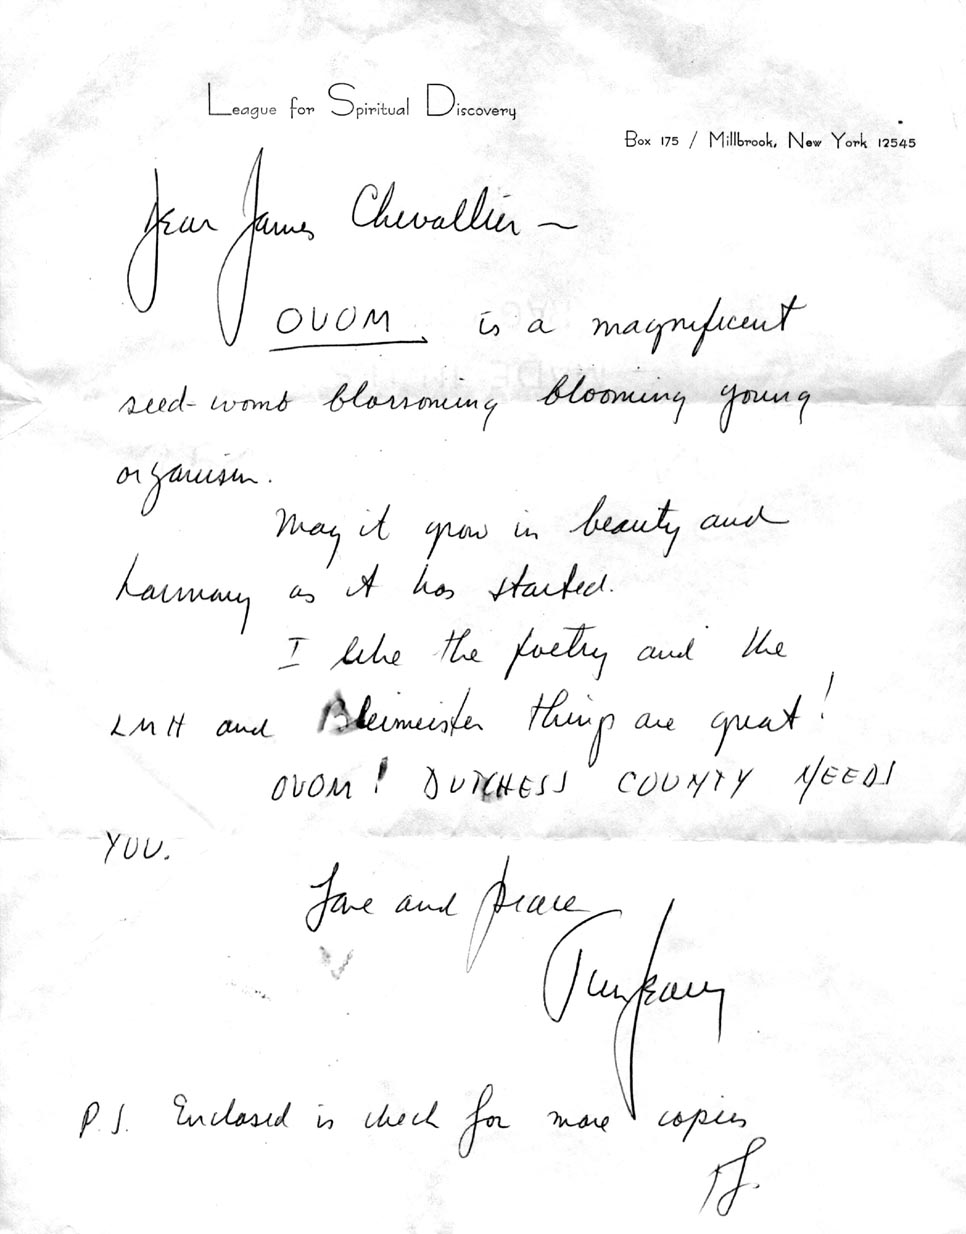 League for Spiritual Discovery
Box 175 / Millbrook, New York 12545
Dear James Chevallier —
OVOM is a magnificent
seed-womb blossoming blooming young
organism.
May it grow in beauty and
harmony as it has started.
I like the poetry and the
LMH and Bleimeister things are great!
OVOM! DUTCHESS COUNTY NEEDS
YOU.
Love and peace
Tim Leary
P.S. Enclosed is check for more copies
TL.